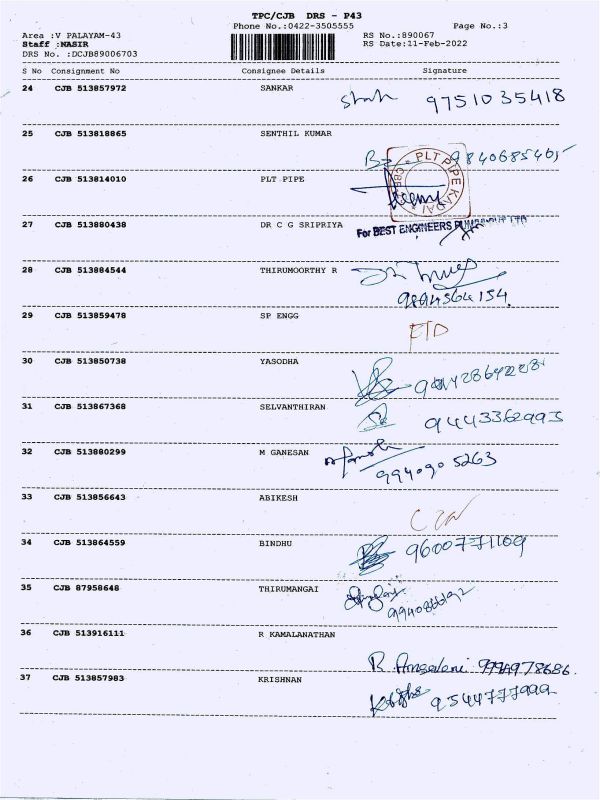 TPC/CJB DRS - P43
Phone No.:0422-3505555 Page No.:3
Area :V PALAYAM-43 RS No.:890067
Staff :NASIR RS Date:11-Feb-2022
DRS No. :DCJB89006703
S No Consignment No Consignee Details Signature
24 CJB 513857972 SANKAR 9751035418
25 CJB 513818865 SENTHIL KUMAR
PLT PIPE KADAI
26 CJB 513814010 PLT PIPE
27 CJB 513880438 DR C G SRIPRIYA
For BEST ENGINEERS
28 CJB 513884544 THIRUMOORTHY R
29 CJB 513859478 SP ENGG
30 CJB 513850738 YASODHA
31 CJB 513867368 SELVANTHIRAN 9443362993
32 CJB 513880299 M GANESAN
9940905263
33 CJB 513856643 ABIKESH
34 CJB 513864559 BINDHU 9600771109
35 CJB 87958648 THIRUMANGAI
36 CJB 513916111 R KAMALANATHAN
37 CJB 513857983 KRISHNAN